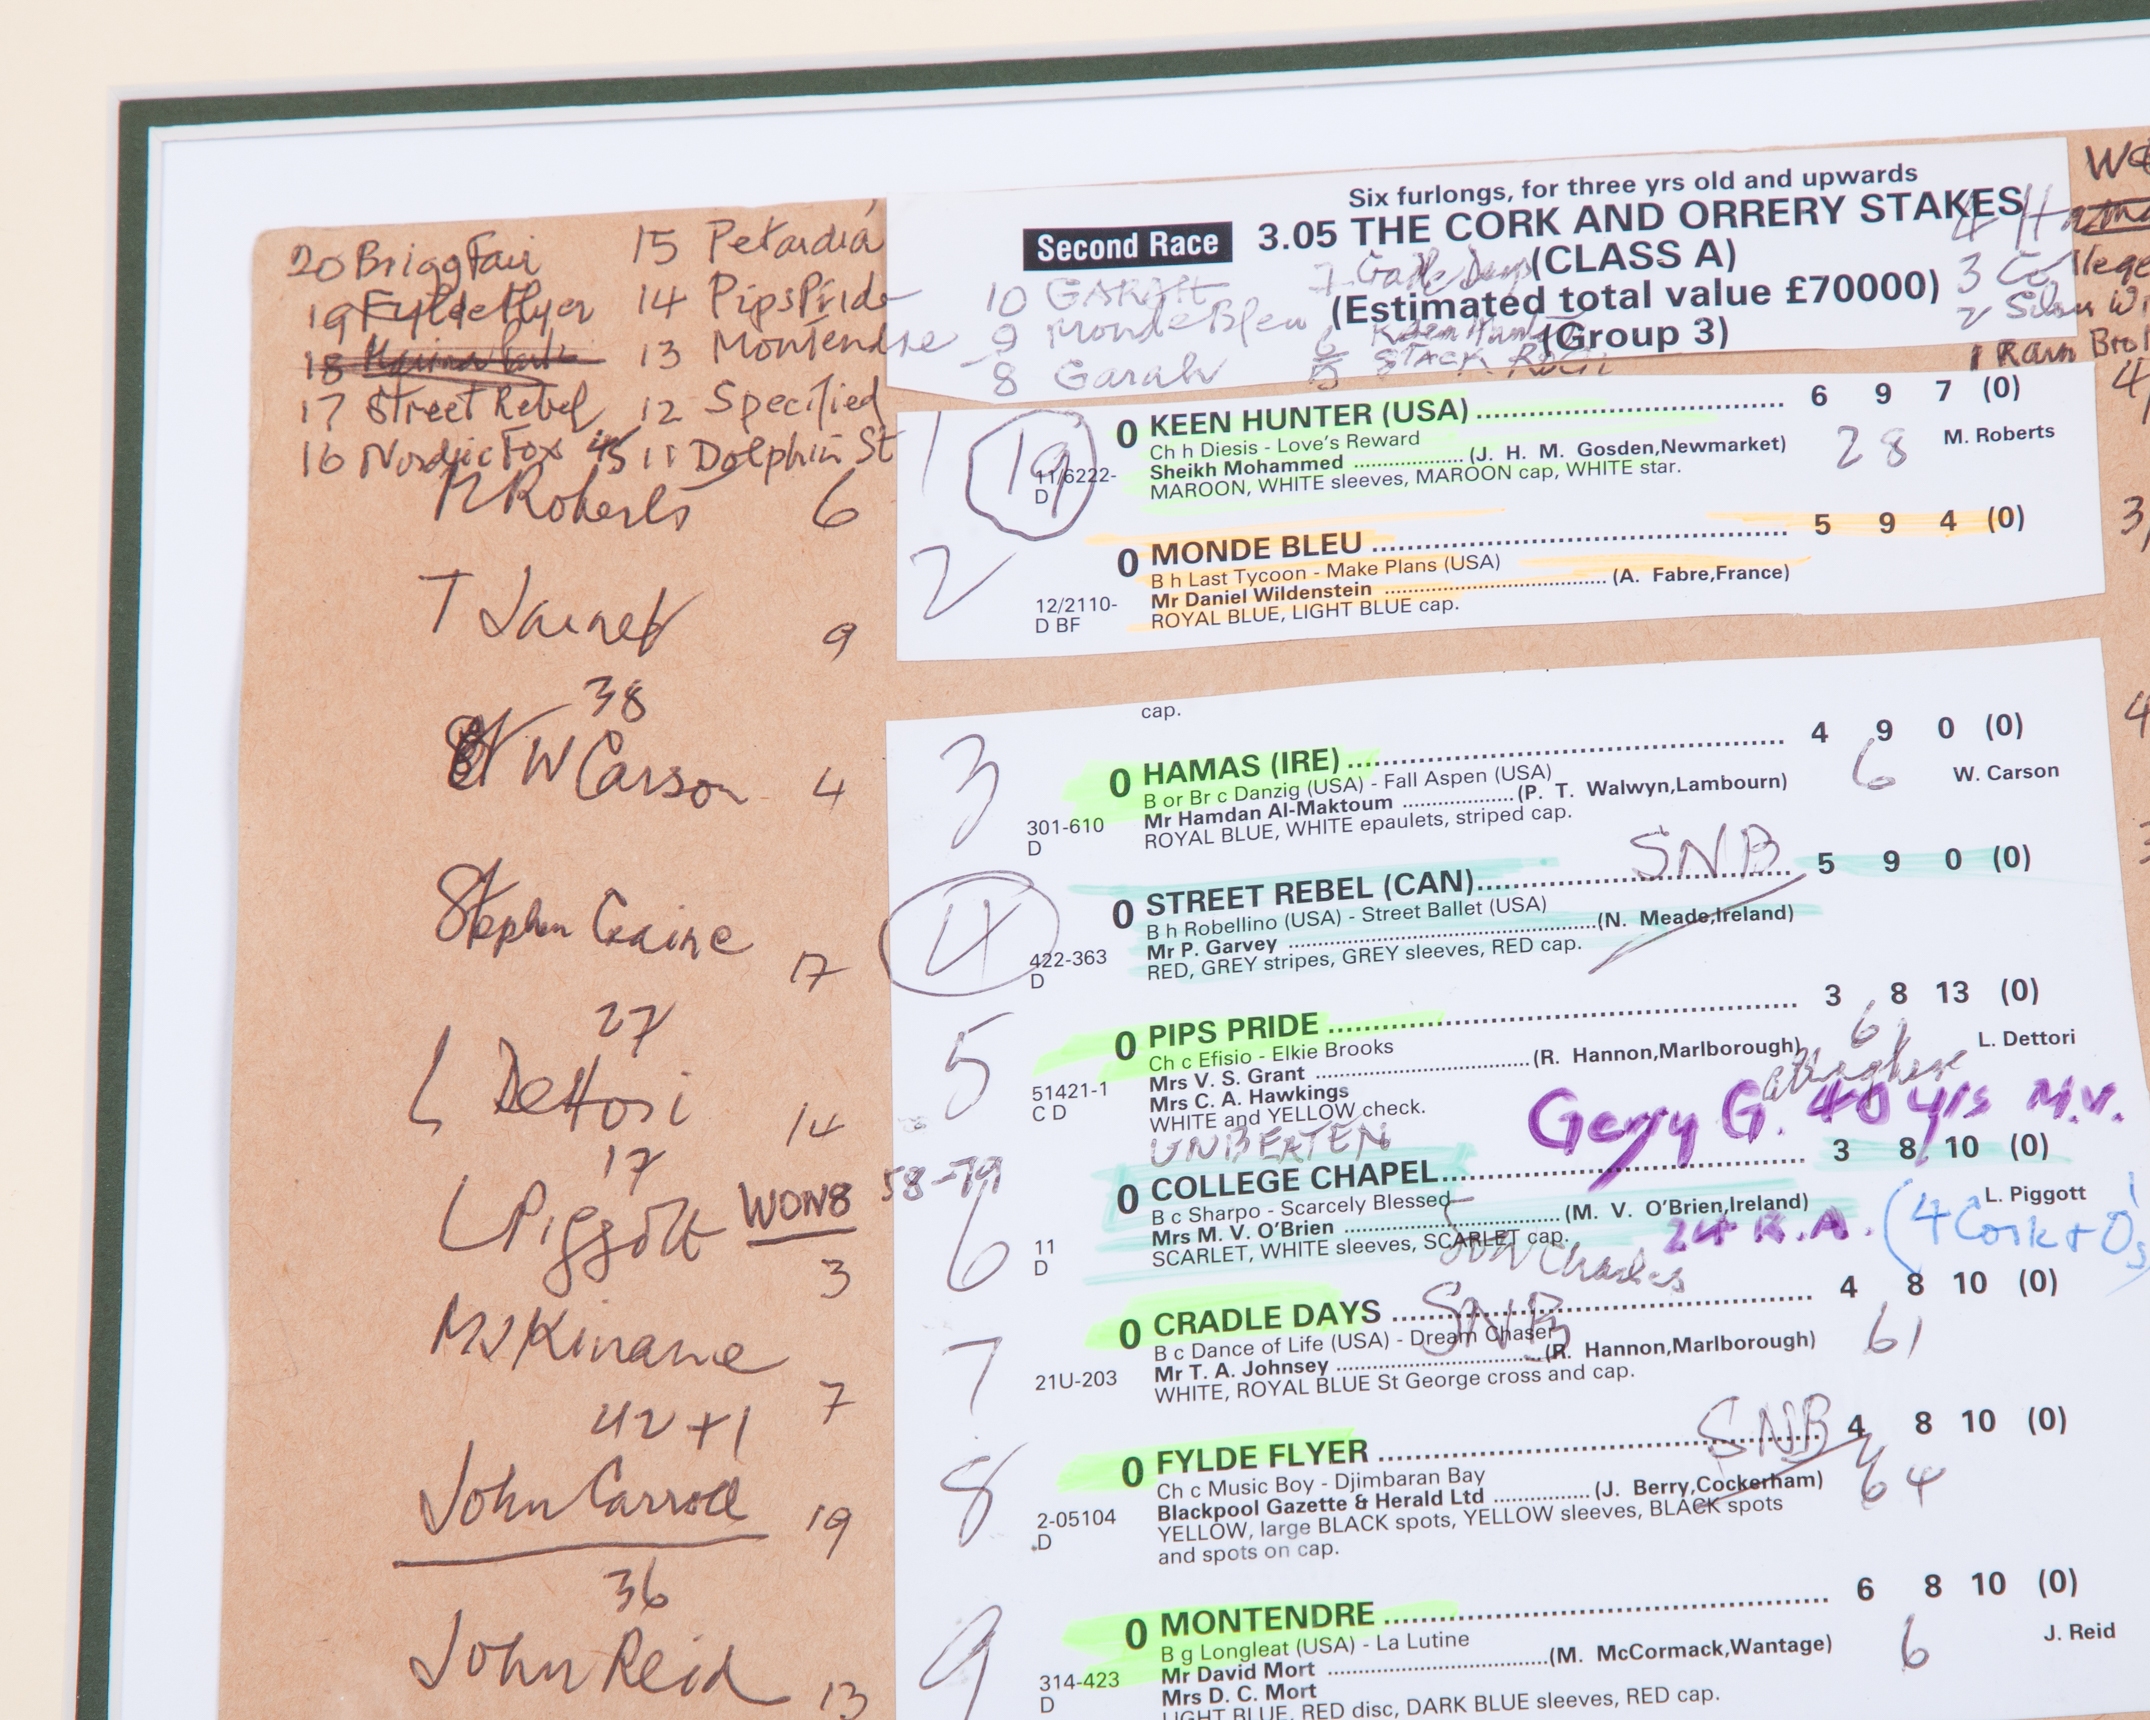 20 Brigg Fair 15 Petardia
19 Fylde Flyer 14 Pips Pride
18
13 Montendre
17 Street Rebel 12 Specified
16 Nordic Fox 11 Dolphin St
Six furlongs, for three yrs old and upwards
Second Race 3.05 THE CORK AND ORRERY STAKES
(CLASS A)
(Estimated total value £70000)
(Group 3)
10 7 Cradle Days 3 College
9 Monde Bleu 6 Keen 2 Silver
8 Garah 5 STACK ROCK 1
M Roberts 6
1 19 0 KEEN HUNTER (USA) 6 9 7 (0)
Ch h Diesis - Love's Reward
11/6222- Sheikh Mohammed (J. H. M. Gosden,Newmarket) 28 M. Roberts
D MAROON, WHITE sleeves, MAROON cap, WHITE star.
T Jarnet 9
2 0 MONDE BLEU 5 9 4 (0)
B h Last Tycoon - Make Plans (USA)
12/2110- Mr Daniel Wildenstein (A. Fabre,France)
D BF ROYAL BLUE, LIGHT BLUE cap.
38
W Carson 4
cap.
3 0 HAMAS (IRE) 4 9 0 (0)
B or Br c Danzig (USA) - Fall Aspen (USA) 6 W. Carson
301-610 Mr Hamdan Al-Maktoum (P. T. Walwyn,Lambourn)
D ROYAL BLUE, WHITE epaulets, striped cap.
Stephen Craine 17
4 0 STREET REBEL (CAN) SNB 5 9 0 (0)
B h Robellino (USA) - Street Ballet (USA)
422-363 Mr P. Garvey (N. Meade,Ireland)
D RED, GREY stripes, GREY sleeves, RED cap.
27
L Dettori 14
5 0 PIPS PRIDE 3 8 13 (0)
Ch c Efisio - Elkie Brooks 61 L. Dettori
51421-1 Mrs V. S. Grant (R. Hannon,Marlborough)
C D Mrs C. A. Hawkings
WHITE and YELLOW check.
Gerry G. 40 yrs M.V.
17
L Piggott WON 8 3
58-79 UNBEATEN
6 0 COLLEGE CHAPEL 3 8 10 (0)
B c Sharpo - Scarcely Blessed L. Piggott
11 Mrs M. V. O'Brien (M. V. O'Brien,Ireland)
D SCARLET, WHITE sleeves, SCARLET cap.
24 R.A. (4 Cork + O's
Son Charles
MJ Kinane 7
7 0 CRADLE DAYS SNB 4 8 10 (0)
B c Dance of Life (USA) - Dream Chaser 61
21U-203 Mr T. A. Johnsey (R. Hannon,Marlborough)
WHITE, ROYAL BLUE St George cross and cap.
42 + 1
John Carroll 19
8 0 FYLDE FLYER SNB 4 8 10 (0)
Ch c Music Boy - Djimbaran Bay 64
2-05104 Blackpool Gazette & Herald Ltd (J. Berry,Cockerham)
D YELLOW, large BLACK spots, YELLOW sleeves, BLACK spots
and spots on cap.
36
John Reid 13
9 0 MONTENDRE 6 8 10 (0)
B g Longleat (USA) - La Lutine 6 J. Reid
314-423 Mr David Mort (M. McCormack,Wantage)
D Mrs D. C. Mort
LIGHT BLUE, RED disc, DARK BLUE sleeves, RED cap.